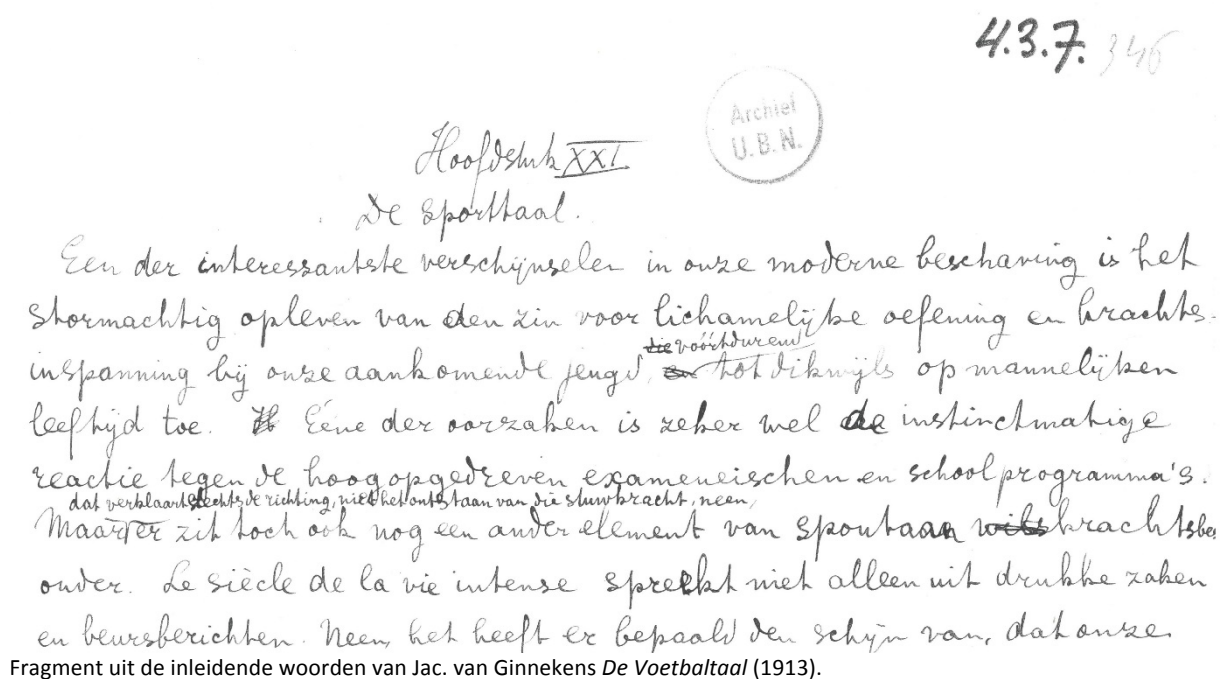 4.3.7. 346
Archief
U.B.N.
Hoofdstuk XXI
De Sporttaal.
Een der interessantste verschijnselen in onze moderne beschaving is het
stormachtig opleven van den zin voor lichamelijke oefening en krachts-
die vóórtdurend
inspanning bij onze aankomende jeugd, en tot dikwijls op mannelijken
leeftijd toe. Eéne der oorzaken is zeker wel de instinctmatige
reactie tegen de hoogopgedreven exameneischen en schoolprogramma's.
dat verklaart slechts de richting, niet het ontstaan van die stuwkracht, neen,
Maar er zit toch ook nog een ander element van spontaan wils krachtsbe
onder. Le siècle de la vie intense spreekt niet alleen uit drukke zaken
en beursberichten. Neen, het heeft er bepaald den schijn van, dat onze
Fragment uit de inleidende woorden van Jac. van Ginnekens De Voetbaltaal (1913).